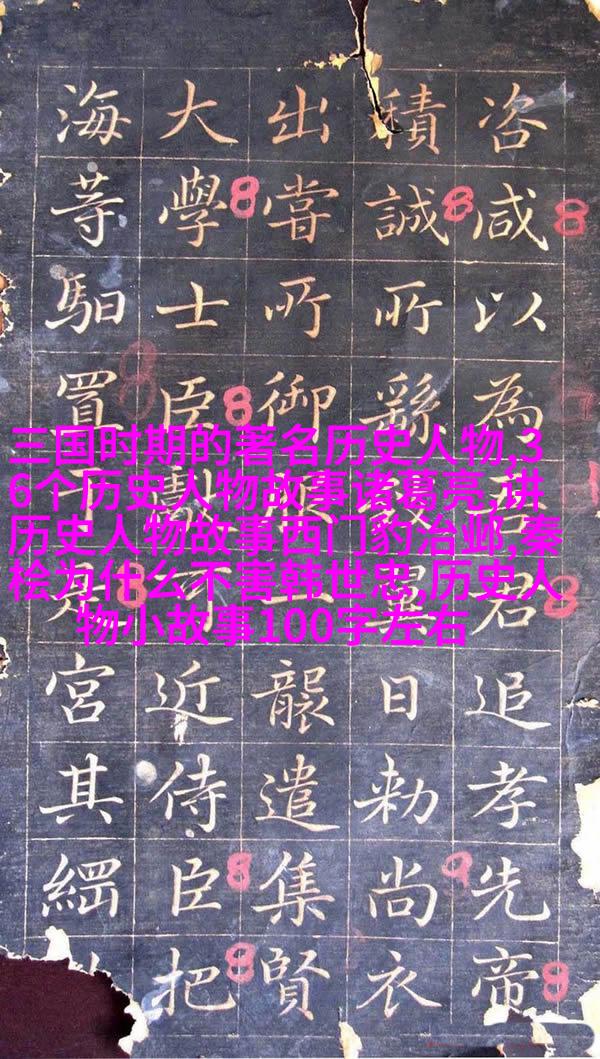 咨咸以為君追孝先帝
積誠所繇日勑尚衣
出嘗所御服一襲遣集賢
大學士臣近侍臣把
海等馹置宮其
三国时期的著名历史人物,3
6个历史人物故事诸葛亮,讲
历史人物故事西门豹治邺,秦
桧为什么不害韩世忠,历史人
物小故事100字左右